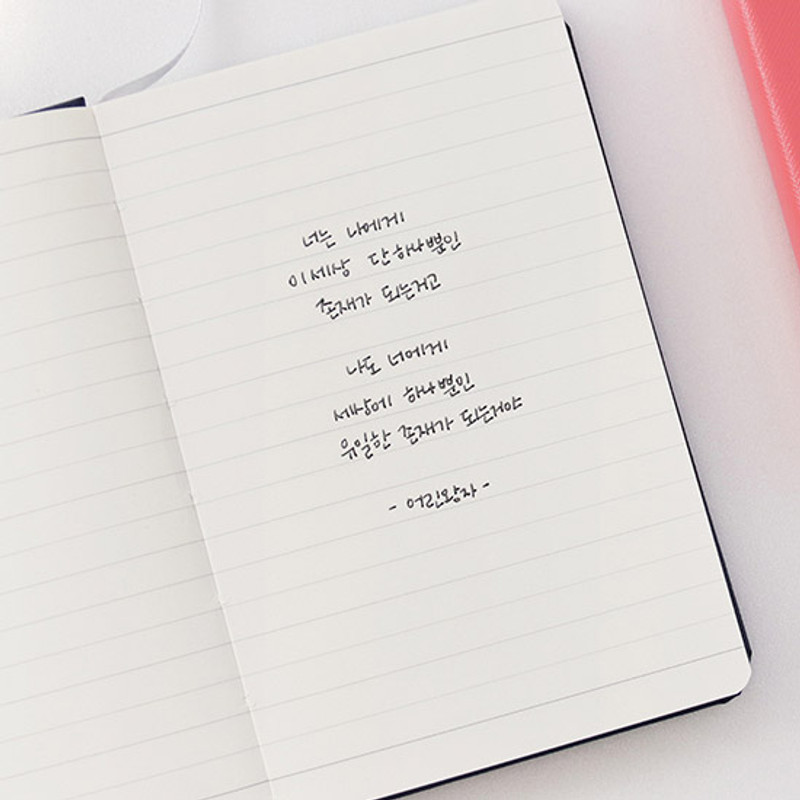 너는 나에게
이 세상 단 하나뿐인
존재가 되는거고
나도 너에게
세상에 하나뿐인
유일한 존재가 되는거야
- 어린왕자 -